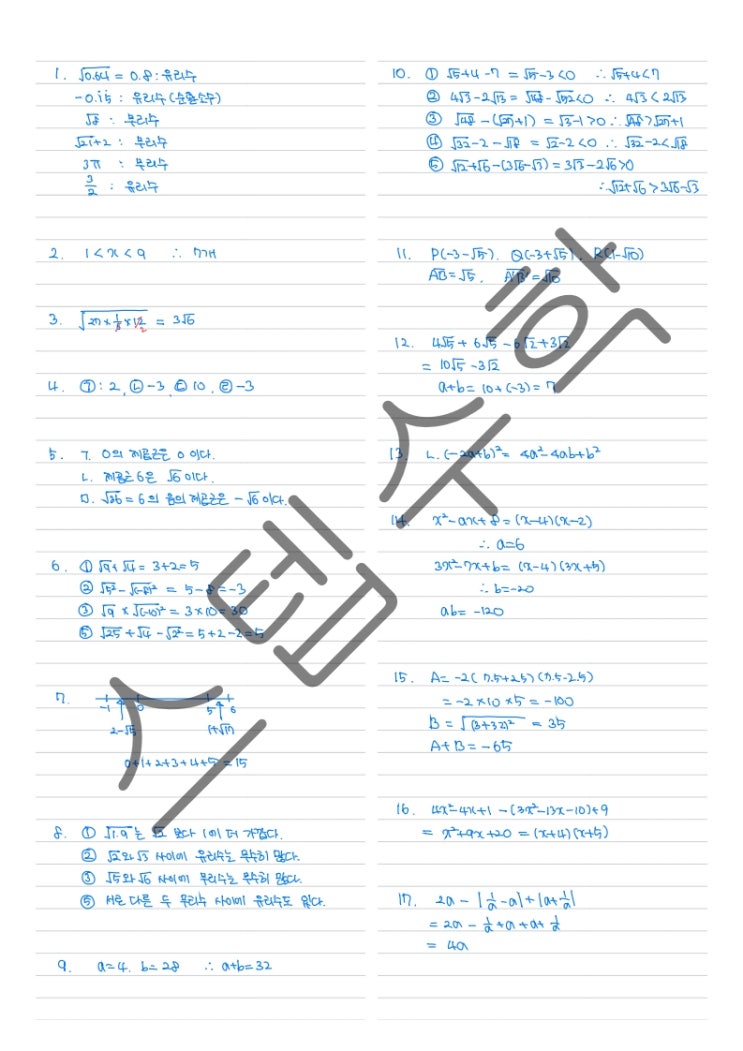 1. √0.64 = 0.8 : 유리수
-0.i5̇ : 유리수 (순환소수)
√8 : 무리수
√21+2 : 무리수
3π : 무리수
3/2 : 유리수
2. 1<x<9 ∴ 7개
3. = 3√6
4. ㉠: 2, ㉡ -3, ㉢ 10, ㉣ -3
5. ㄱ. 0의 제곱근은 0 이다.
ㄴ. 제곱근 6은 √6 이다.
ㅁ. √36 = 6의 음의 제곱근은 -√6 이다.
6. ① √9+√4 = 3+2=5
② √5² - √(-8)² = 5-8=-3
③ √9 × √(-10)² = 3×10=30
⑤ √25 + √4 - √2² = 5+2-2=5
7.
-1 0 5 6
2-√5 1+√17
0+1+2+3+4+5=15
8. ① √1.9는 √2 보다 1에 더 가깝다.
② √2와 √3 사이에 유리수는 무수히 많다.
③ √5와 √6 사이에 무리수는 무수히 많다.
⑤ 서로 다른 두 무리수 사이에 유리수도 있다.
9. a=4, b=28 ∴ a+b=32
10. ① √5+4-7 = √5-3<0 ∴ √5+4<7
② 4√3-2√13 = √48-√52<0 ∴ 4√3<2√13
③ √48-(√27+1) = √3-1>0 ∴ √48>√27+1
④ √32-2-√18 = √2-2<0 ∴ √32-2<√18
⑤ √12+√6-(3√6-√3) = 3√3-2√6>0
∴ √12+√6>3√6-√3
11. P(-3-√5), Q(-3+√5), R(1-√10)
AB=√5, =√10
12. 4√5+6√5-6√2+3√2
= 10√5-3√2
a+b= 10+(-3)= 7
13. ㄴ. (-2a+b)²= 4a²-4ab+b²
14. x²-ax+8=(x-4)(x-2)
∴ a=6
3x²-7x+b= (x-4)(3x+5)
∴ b=-20
ab= -120
15. A= -2(7.5+2.5)(7.5-2.5)
= -2×10×5 = -100
B = √(3+32)² = 35
A+B = -65
16. 4x²-4x+1-(3x²-13x-10)+9
= x²+9x+20 = (x+4)(x+5)
17. 2a - |1/a-a|+|a+1/a|
= 2a - 1/a+a+a+1/a
= 4a
스텝수학